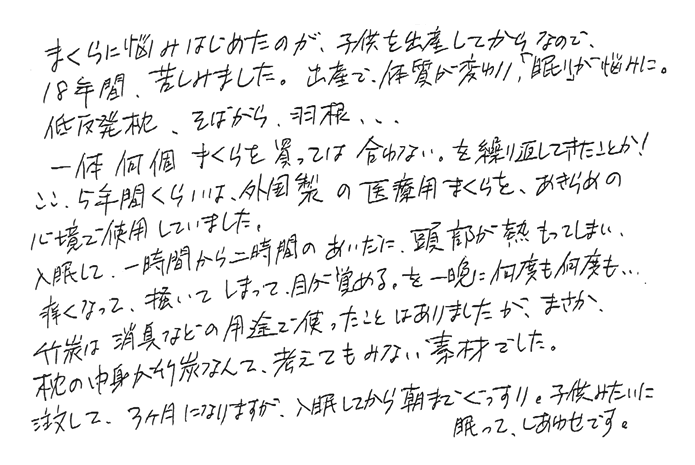 まくらに悩みはじめたのが、子供を出産してからなので、
18年間、苦しみました。出産で、体質が変わり、「眠り」が悩みに。
低反発枕、そばがら、羽根、、、
一体何個まくらを買っては合わない。を繰り返してきたことか!
ここ、5年間くらいは、外国製の医療用まくらを、あきらめの
心境で使用していました。
入眠して、一時間から二時間のあいだに、頭部が熱もってしまい、
痒くなって、掻いてしまって、目が覚める。を一晩に何度も何度も…
竹炭は消臭などの用途で使ったことはありましたが、まさか、
枕の中身が竹炭なんて、考えてもみない素材でした。
注文して、3ヶ月になりますが、入眠してから朝までぐっすり。子供みたいに
眠って、しあわせです。